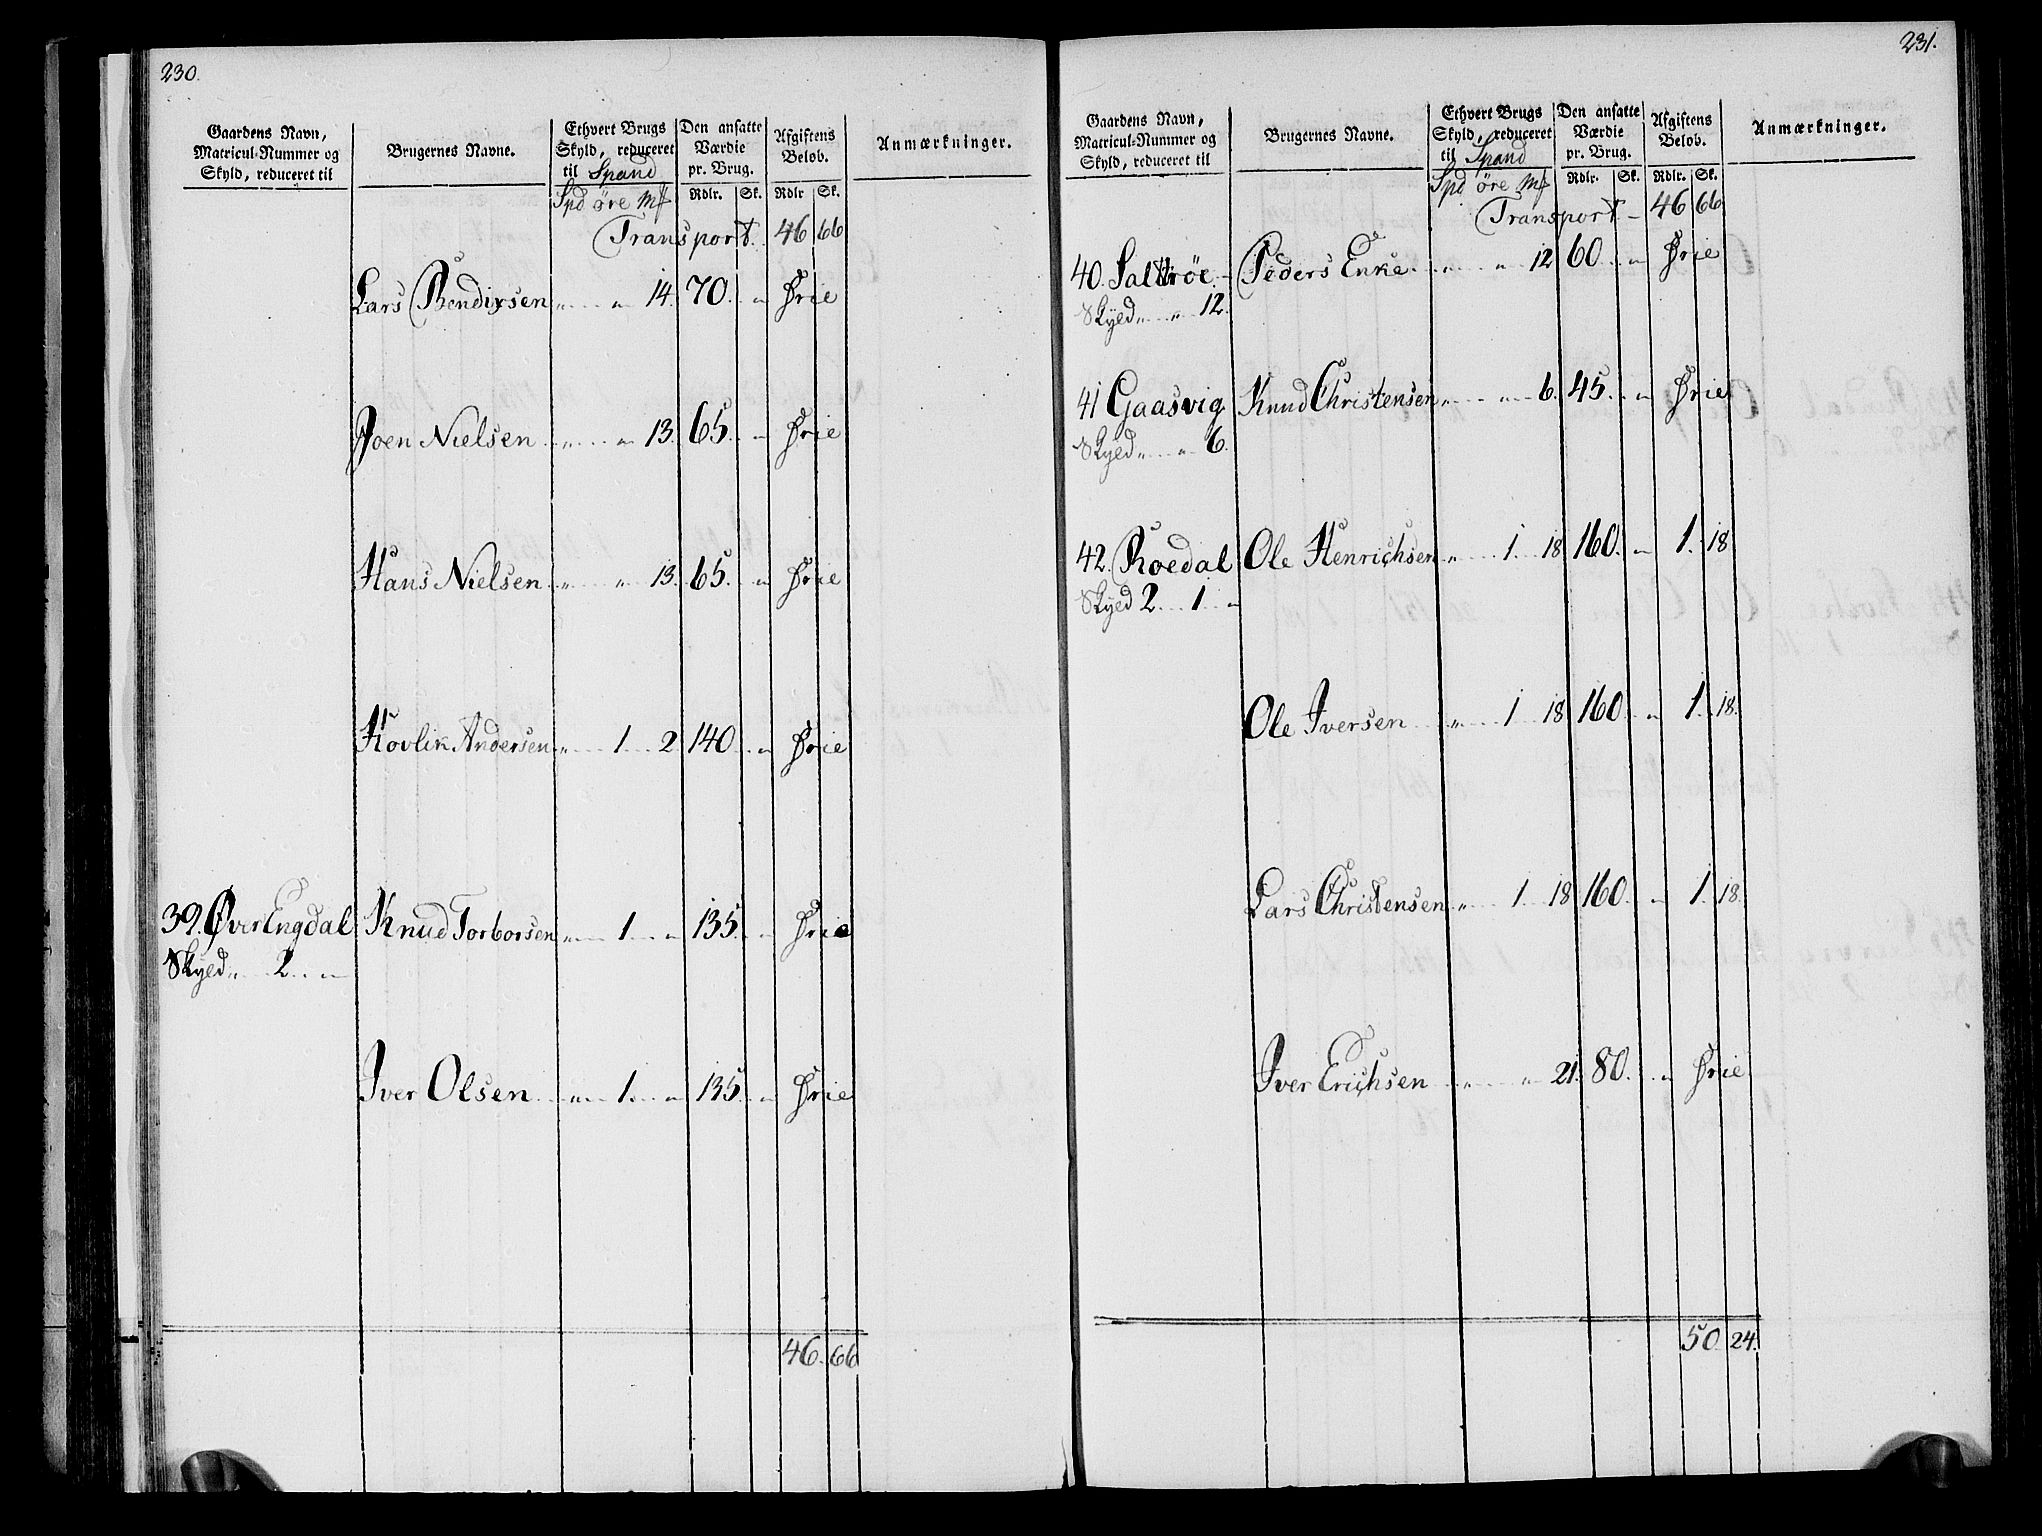 230.
Gaardens Navn, Matricul-Nummer og Skyld, reduceret til
Brugernes Navne.
Ethvert Brugs Skyld, reduceret til Spand
Den ansatte Værdie pr. Brug.
Afgiftens Beløb.
Anmærkninger.
Spd øre Mf Rdlr. Sk. Rdlr Sk.
Transport. 46 66
Lars Bendixsen „ „ 14. 70. „ Frie
Joen Nielsen „ „ 13. 65. „ Frie
Hans Nielsen „ „ 13. 65. „ Frie
Hovlik Andersen „ 1 2 140 „ Frie
39. ØverEngdal Knud Torborsen „ 1 „ 135. „ Frie
Skyld „ 2 „
Iver Olsen „ 1. „ 135. „ Frie
46. 66
231.
Gaardens Navn, Matricul-Nummer og Skyld, reduceret til
Brugernes Navne.
Ethvert Brugs Skyld, reduceret til Spand
Den ansatte Værdie pr. Brug.
Afgiftens Beløb.
Anmærkninger.
Spd øre Mf Rdlr. Sk. Rdlr. Sk.
Transport 46 66
40. Salttrøe Peders Enke „ „ 12 60. „ Frie
Skyld „ „ 12.
41 Gaasvig Knud Christensen „ „ 6. 45. „ Frie
Skyld „ „ 6.
42. Roedal Ole Henrichsen „ 1. 18 160. „ 1. 18
Skyld 2 1 „
Ole Iversen „ 1 18 160 „ 1. 18.
Lars Christensen „ 1 18 160. „ 1. 18.
Iver Erichsen „ „ 21. 80. „ Frie
50. 24.